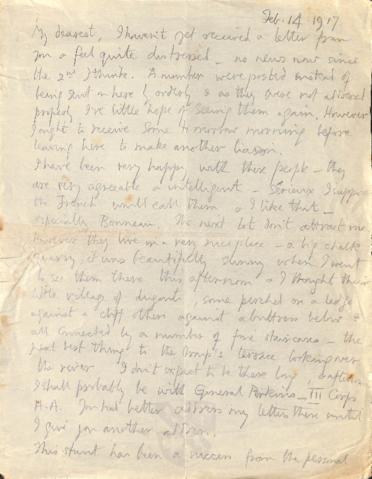 Feb. 14. 1917
My dearest, I haven't yet received a letter from
you & feel quite distressed – no news now since
the 2nd I think. A number were posted instead of
being sent in here by orderly & as they were not addressed
properly I've little hope of seeing them again. However
I ought to receive some to morrow morning before
leaving here to make another liaison.
I have been very happy with these people – they
are very agreeable & intelligent – serieux I suppose
the French would call them & I like that –
especially Bonneau. The next lot don't attract me
However they live in a very nice place – a big chalk
quarry; it was beautifully sunny when I went
to see them there this afternoon & I thought their
little village of dugouts, some perched on a ledge
against a cliff others against a buttress below &
all connected by a number of fine staircases – the
next best thing to the Group's terrace looking over
the river. I don't expect to be there long & after
I shall probably be with General Perkins – III Corps
H.A. You had better address my letters there until
I give you another address.
This stunt has been a success from the personal